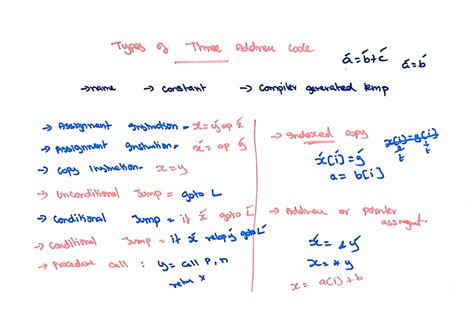 Types of Three Address Code
a = b+c
a = b
→ name → constant → Compiler generated temp
→ Assignment Instruction = x = y op z
→ Assignment Instruction = x = op y
→ Copy Instruction - x = y
→ Unconditional Jump = goto L
→ Conditional Jump = if x goto L
→ Conditional Jump = if x relop y goto L
→ Procedure call : y = call P, n
return x
→ Indexed copy
x[i] = y[i]
t t
x[i] = y
a = b[i]
→ Address or pointer
assignment
x = &y
x = *y
x = a[i] + b